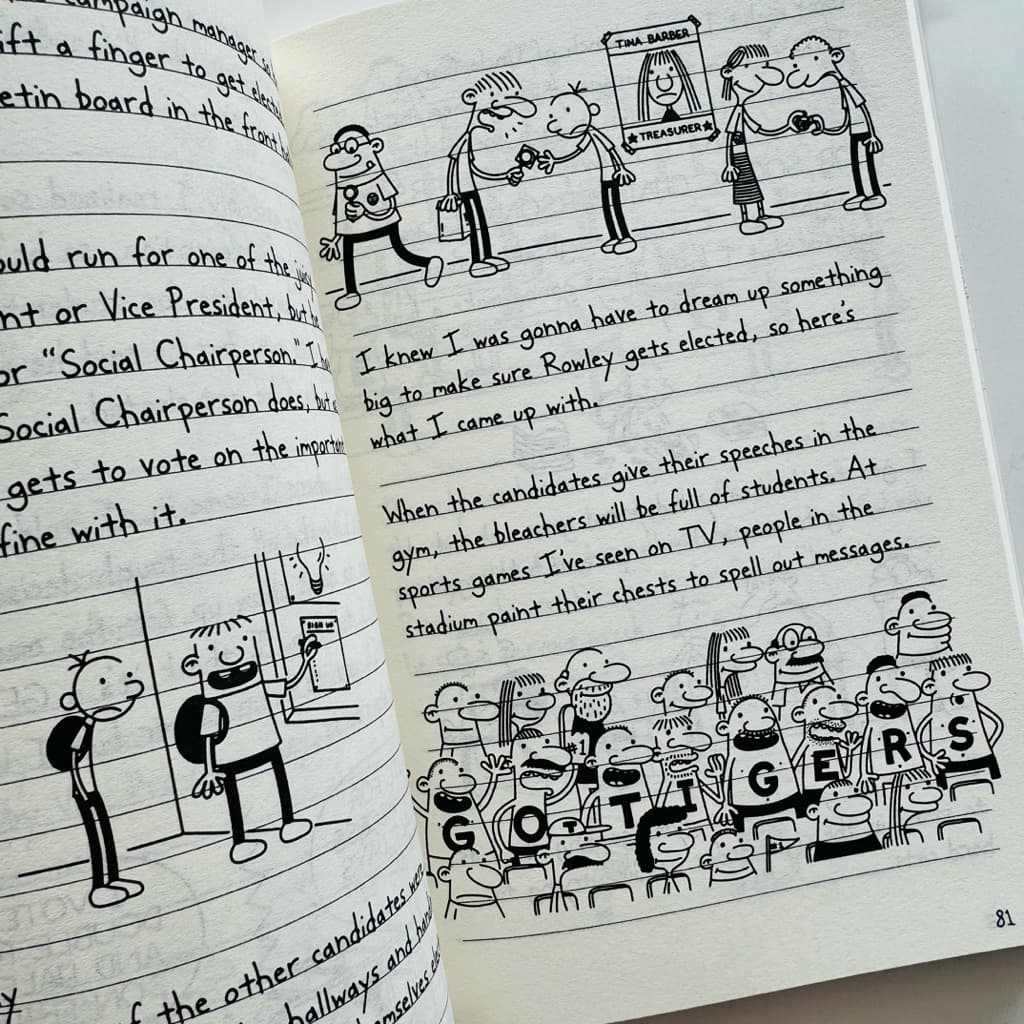 campaign manager, so
ift a finger to get elected
etin board in the front
ould run for one of the juicy
nt or Vice President, but he
or "Social Chairperson." I
Social Chairperson does, but
gets to vote on the important
fine with it.
SIGN UP
f the other candidates were
hallways and
mselves
TINA BARBER
★TREASURER★
I knew I was gonna have to dream up something
big to make sure Rowley gets elected, so here's
what I came up with.
When the candidates give their speeches in the
gym, the bleachers will be full of students. At
sports games I've seen on TV, people in the
stadium paint their chests to spell out messages.
#1
GO TIGERS
T
81